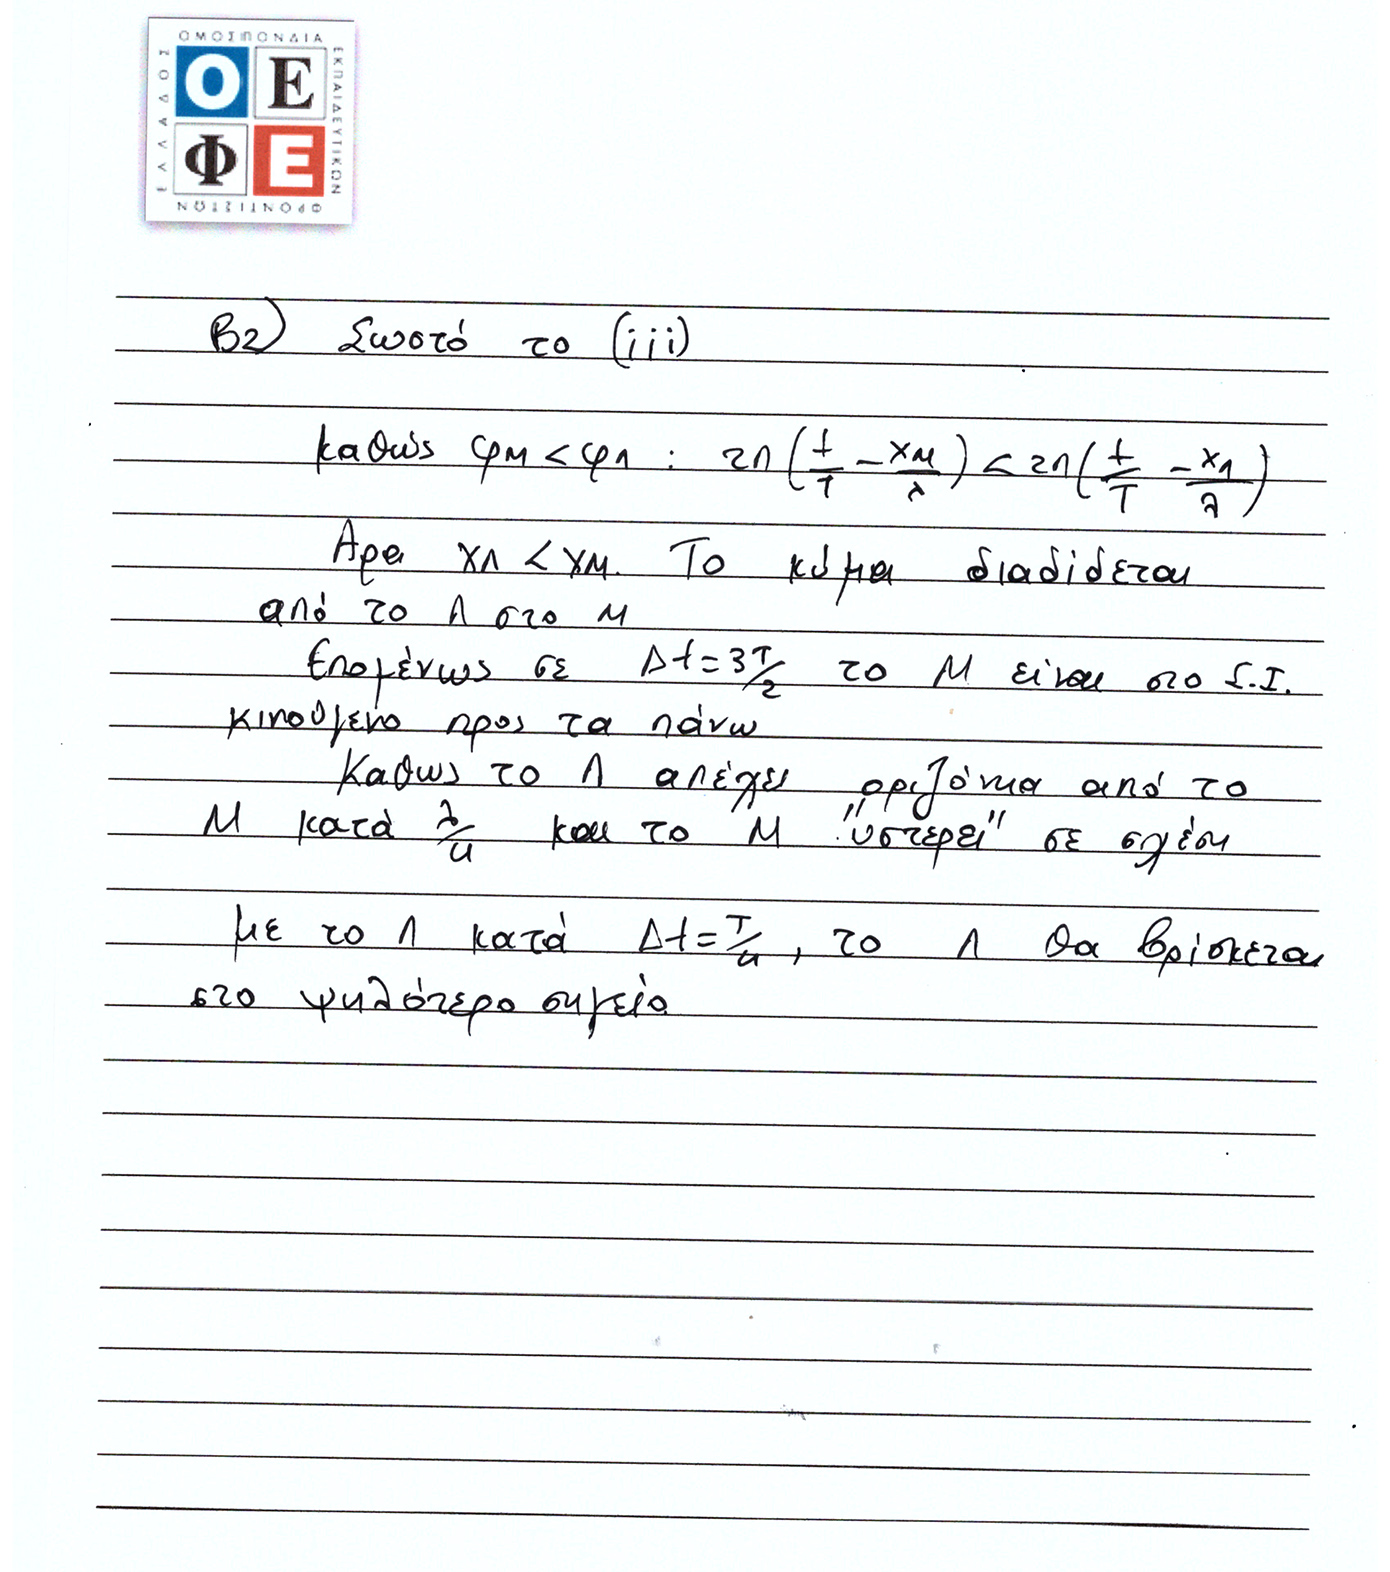 ΟΜΟΣΠΟΝΔΙΑ
ΕΚΠΑΙΔΕΥΤΙΚΩΝ
ΦΡΟΝΤΙΣΤΩΝ
ΕΛΛΑΔΟΣ
Ο Ε
Φ Ε
Β2) Σωστό το (iii)
καθώς φΜ < φΛ : 2π(t/T - xΜ/λ) < 2π(t/T - xΛ/λ)
Άρα xΛ < xΜ. Το κύμα διαδίδεται
από το Λ στο Μ
Επομένως σε Δt = 3T/2 το Μ είναι στο Θ.Ι.
κινούμενο προς τα πάνω
Καθώς το Λ απέχει οριζόντια από το
Μ κατά λ/4 και το Μ "υστερεί" σε σχέση
με το Λ κατά Δt = T/4, το Λ θα βρίσκεται
στο ψηλότερο σημείο